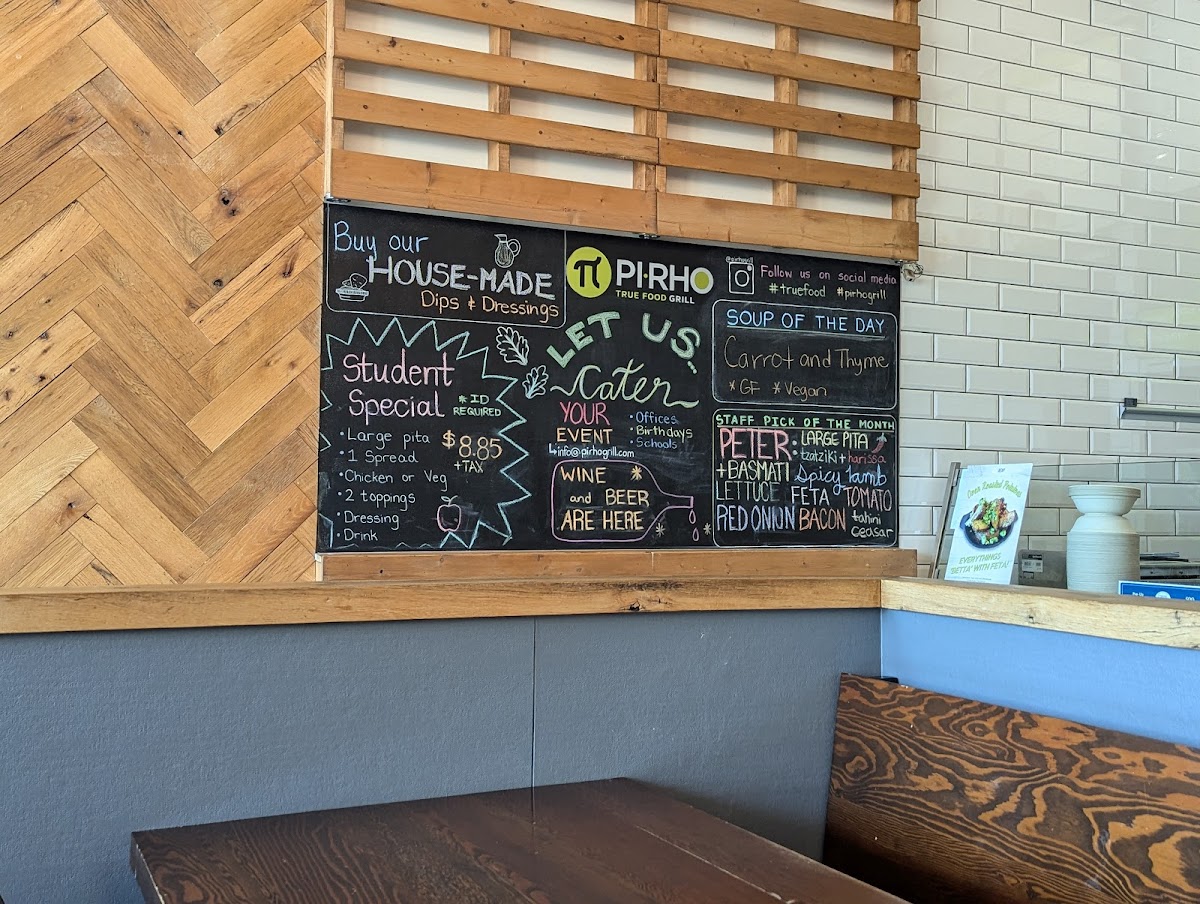 Buy our
HOUSE-MADE
Dips & Dressings
π PI·RHO
TRUE FOOD GRILL
@pirhogrill
Follow us on social media
#truefood #pirhogrill
Student
Special
* ID
REQUIRED
• Large pita
• 1 Spread
• Chicken or Veg
• 2 toppings
• Dressing
• Drink
$8.85
+TAX
LET US...
Cater
YOUR
EVENT
• Offices
• Birthdays
• Schools
info@pirhogrill.com
WINE
and BEER
ARE HERE
SOUP OF THE DAY
Carrot and Thyme
* GF * Vegan
STAFF PICK OF THE MONTH
PETER: LARGE PITA
tzatziki + harissa
+ BASMATI Spicy lamb
LETTUCE FETA TOMATO
RED ONION BACON tahini
ceasar
Oven Roasted Potatoes
EVERYTHINGS
'BETTA' WITH FETA!